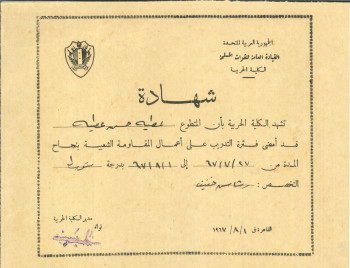 الجمهورية العربية المتحدة
القيادة العامة للقوات المسلحة
الكلية الحربية
شهادة
تشهد الكلية الحربية بأن المتطوع عطيه حسن عطيه
قد أمضى فترة التدريب على أعمال المقاومة الشعبية بنجاح
المدة من ٦٧/٧/٢٧ إلى ٦٧/٨/١ بدرجة
التخصص : رشاش خفيف
القاهرة في ١٩٦٧/٨/١
مدير الكلية الحربية
لواء